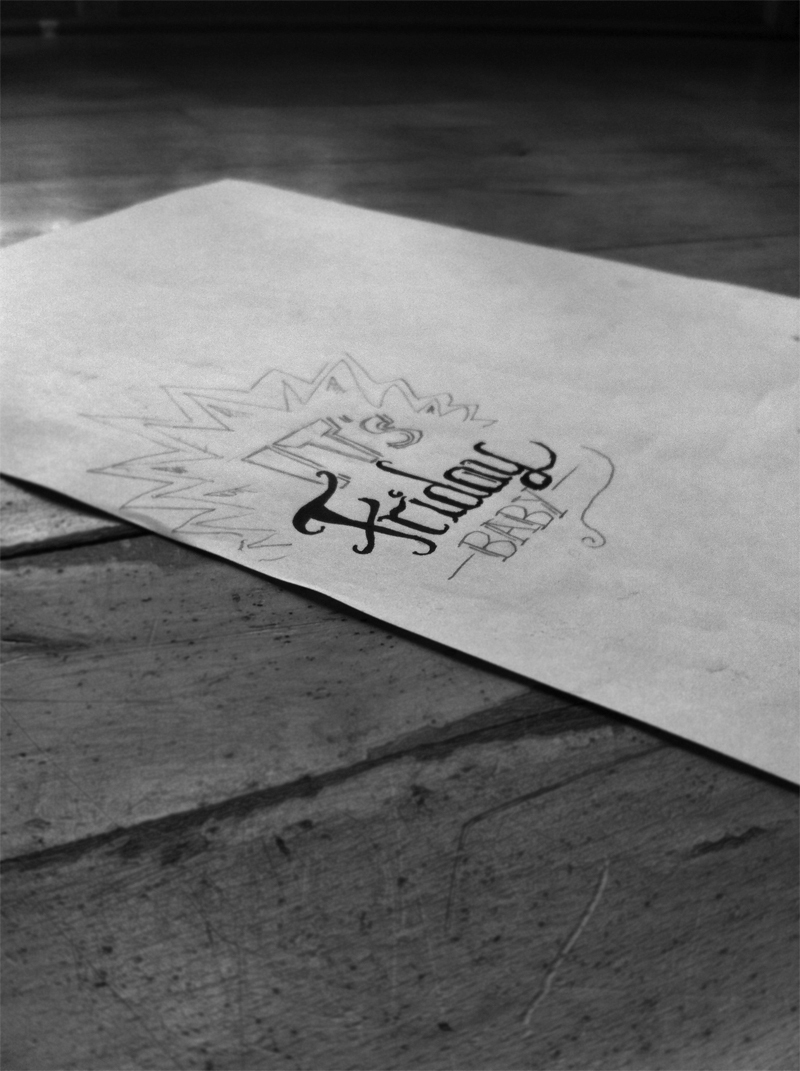 IT's
Friday
-BABY-